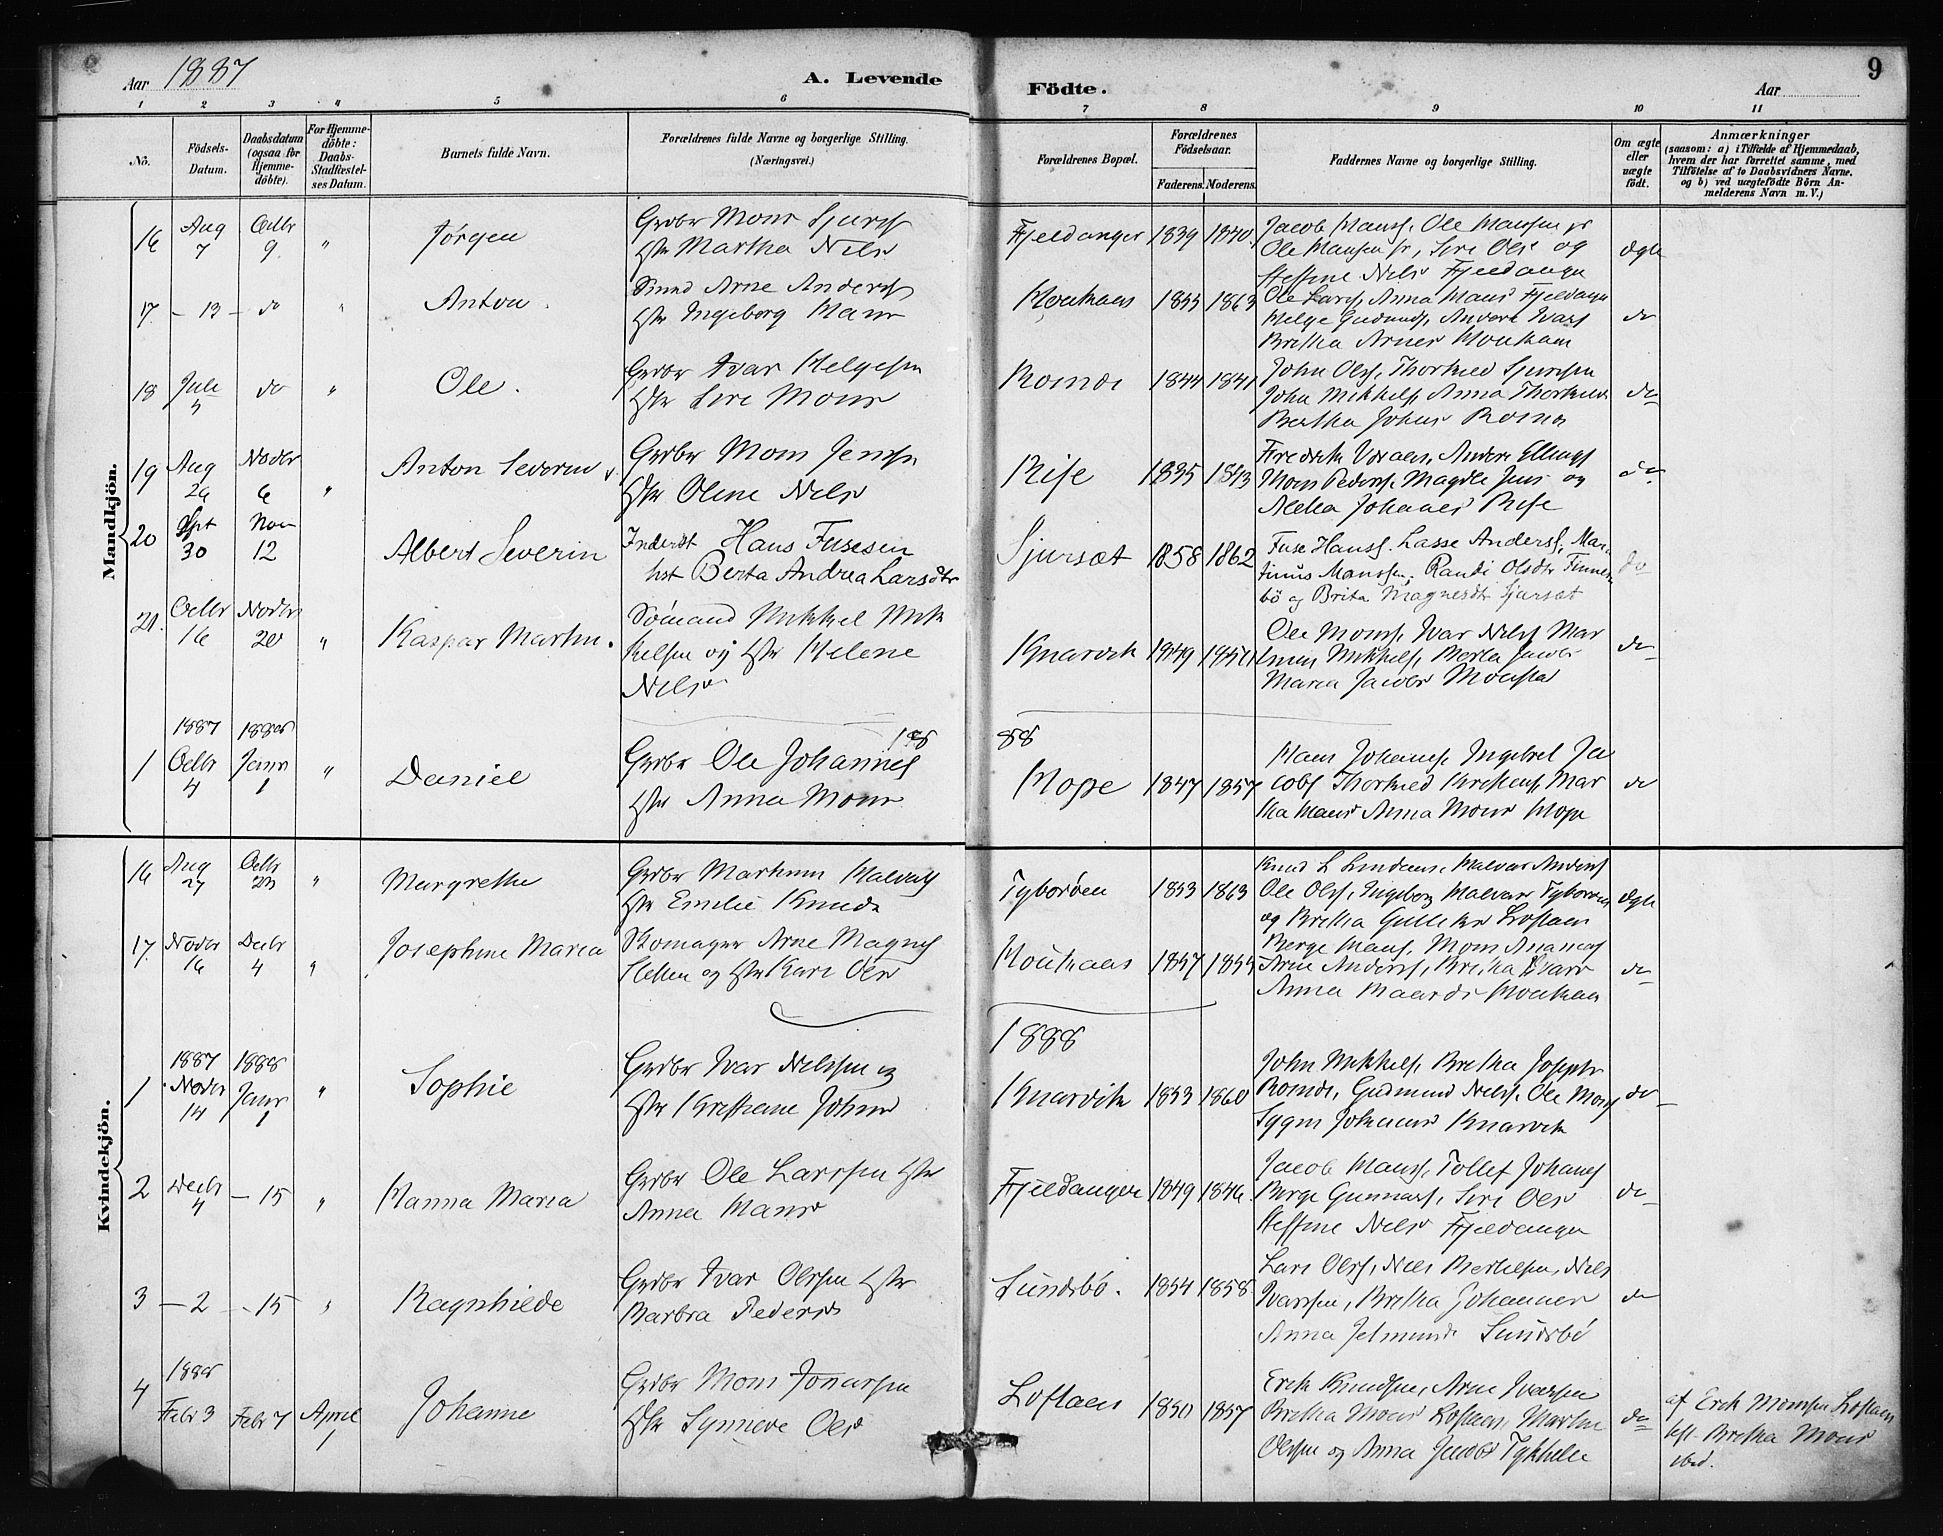 Aar 1887
A. Levende
Födte.
Aar
9
1 2 3 " 5 6 7 8 9 10 11
No.
Födsels-
Datum.
Daabsdatum
(ogsaa for
Hjemme-
döbte).
For Hjemme-
döbte:
Daabs-
Stadfæstel-
ses Datum.
Barnets fulde Navn.
Forældrenes fulde Navne og borgerlige Stilling.
(Næringsvei.)
Forældrenes Bopæl.
Forældrenes
Födselsaar.
Faderens. Moderens.
Faddernes Navne og borgerlige Stilling.
Om ægte
eller
uægte
födt.
Anmærkninger
(saasom: a) i Tilfælde af Hjemmedaab,
hvem der har forrettet samme, med
Tilföielse af to Daabsvidners Navne.
og b) ved uægtefödte Börn An-
melderens Navn m. V.)
Mandkjön.
16 Aug 7 Octbr 9 " Jørgen
Grdbr Mons Sjurss
Hstr Martha Nilsd
Fjeldanger 1839 1840
Jacob Manss, Ole Manssen jr
Ole Manssen sr, Siri Olsd og
Steffine Nilsd Fjeldanger
ægte
17. - 13 - do " Anton.
Arne Anderss
Hstr Ingeborg Mansd
1855 1863
Ole Larss, Anna Mansd Fjeldanger
Helge Gudmunds, Anders Ivars
Britha Arnesd
do
18 Juli 5 do " Ole.
Grdbr Ivar Helgesen
Hstr Siri Monsd
1844 1841
John Olss, Thorkild Sjurssen
John Mikkels, Anna Thorkilds
Bertha Johnsd
do
19 Aug 29 Novbr 6 " Anton Severin
Grdbr Mons Jenssen
Hstr Oline Nilsd
Rise 1835 1843
Fredrik Anders Ellings
Mons Peders, Magdle Jens og
Johannes Rise
do
20 Spt 30 Nov 12 Albert Severin
Inderst Hans Fusesen
hst Berta Andrea Larsdtr
Sjursæt 1858 1862
Fuse Hanss. Lasse Anderss, Mar-
tinus Manssen, Randi Olsdtr Finnes-
bö og Brita Magnesdtr Sjursæt
do
21. Octbr 16 Novbr 20 " Kaspar Martin.
Sömand Mikkel Mik
kelsen og Hstr Helene
Nilsd
Knarvik 1849
Ole Monss, Ivar Nilss Mar
Mikkels, Berta Jacobs
Maria Jacobs
do
1887 1888
1888
1 Octbr 4 Janr 1 " Daniel
Grdbr Ole Johanness
Hstr Anna Monsd
Hope 1847 1857
Hans Johans, Ingebret Ja
cobs Thorkild Kristens, Mar
tha Mansd Anna Monsd Hope
do
Kvindekjön.
16 Aug 27 Octbr 23 " Margrethe
Grdbr Martinus Halvars
Hstr Emilie Knudsd
Tyborøen 1853 1863
Knud L Lindaas, Halvar Anders
Ole Olss, Ingeborg Halvarsd Tyborøen
og Britha Gulliksd Loftaas
ægte
17. Novbr 16 Decbr 4 " Josephine Maria
Skomager Arne Magnes
Sletten og Hstr Kari Olsd
1857 1855
Berge Manss, Mons Ananias
Arne Anderss, Britha Ivarsd
Anna
do
1888
1887 1888
1 Novbr 14 Janr 1 " Sophie
Grdbr Ivar Nilssen og
Hstr Kristiane Johnsd
Knarvik 1853 1860
John Mikkels, Britha Josephs
Gudmund Nilss, Ole Mons
Johannes Knarvik
do
2 Decbr 4 - 15 " Hanna Maria
Grdbr Ole Larssen Hstr
Anna Mansd
Fjeldanger 1849 1846
Jacob Manss, Tollef Johans
Berge Gunnars, Siri Olsd
Steffine Nilsd Fjeldanger
do
3 - 2 - 15 " Ragnhilde
Grdbr Ivar Olssen Hstr
Barbra Pedersd
Sundsbö. 1854 1858
Lars Olss, Nils Berthelsen, Nils
Ivarssen, Britha Johannes
Anna Sundsbö
do
1888
4 Febr 3 Febr 7 April 1 Johanne
Grdbr Mons Jonnassen
Hstr Synneve Olsd
Loftaas 1850 1857
Erik Knudsen, Arne Ivarssen
Britha Monsd Loftaas, Martin
Olssen og Anna Jacobs
do
af Erik Monssen Loftaas
test. Britha Monsd
ibid.